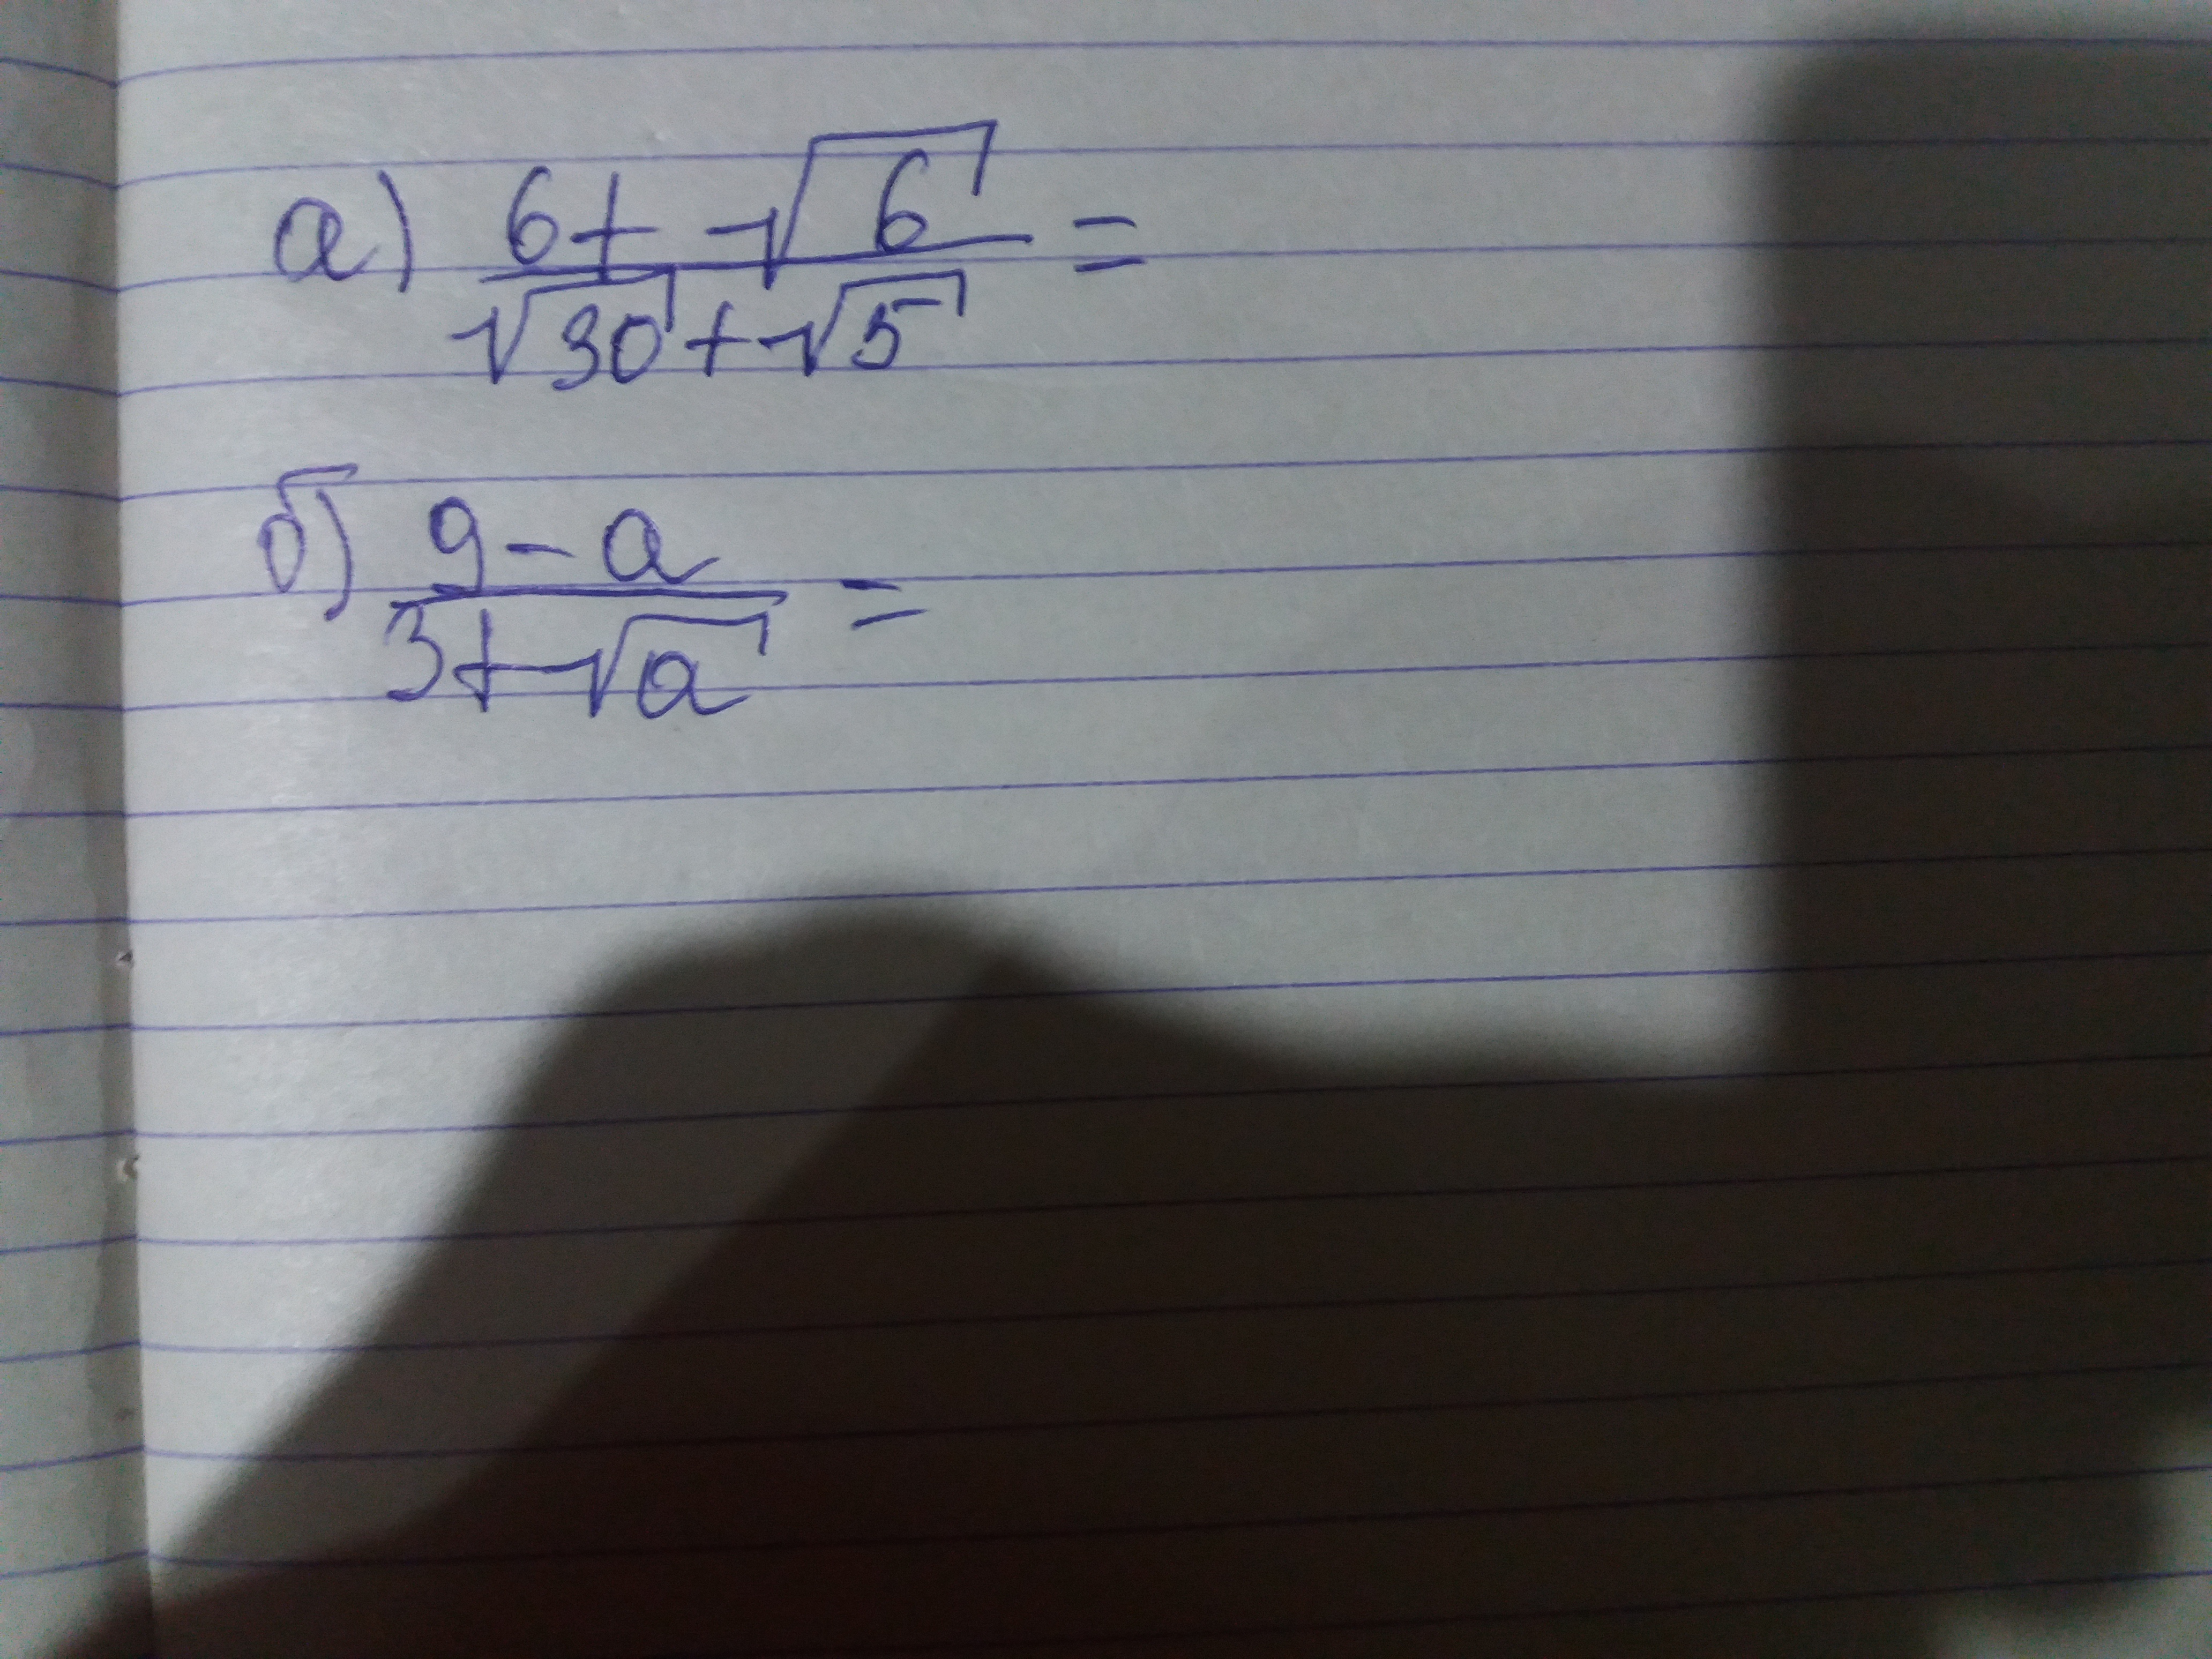 а) (6+√6)/(√30+√5) =
б) (9-a)/(3+√a) =